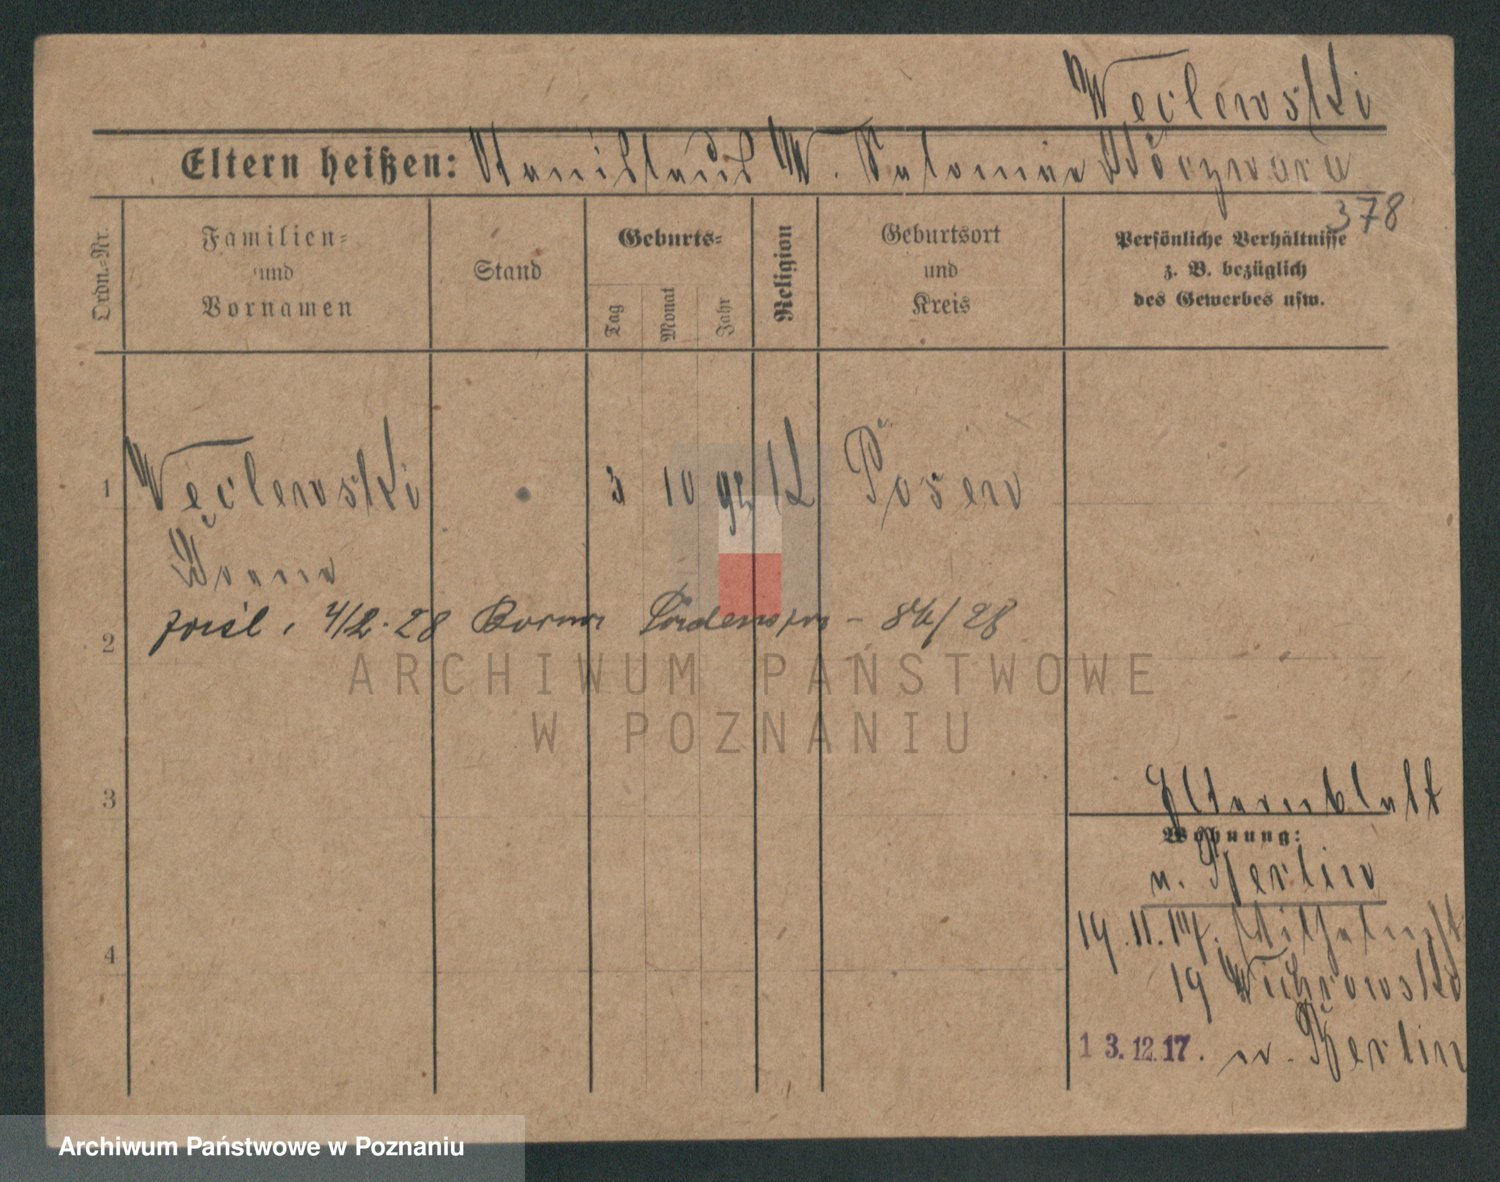 Weclewski
Eltern heißen: Stanislaus W. Salomea
378
Ordn.-Nr.
Familien-
und
Vornamen
Stand
Geburts-
Tag
Monat
Jahr
Religion
Geburtsort
und
Kreis
Persönliche Verhältnisse
z. B. bezüglich
des Gewerbes usw.
1 Weclewski 3 10 K Posen
4/2.28 - 84/28
2
ARCHIWUM PAŃSTWOWE
W POZNANIU
3
Elternblatt
Wohnung:
n. Berlin
19.11.17. Wilhelmst
4
19
13.12.17. n. Berlin
Archiwum Państwowe w Poznaniu